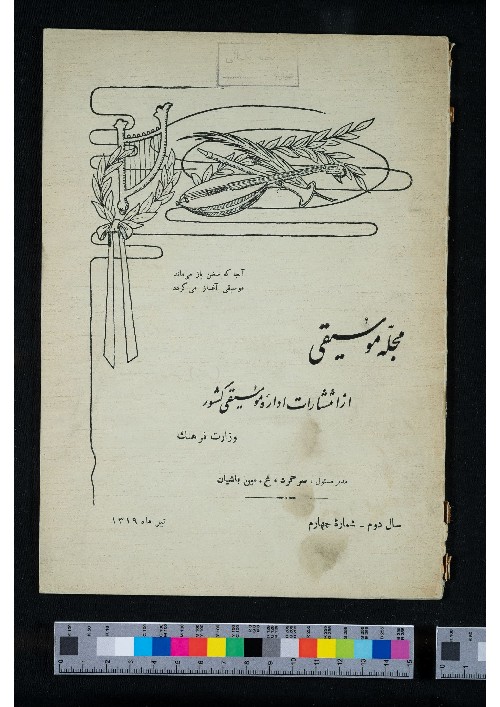 آنجا که سخن باز میماند
موسیقی آغاز می گردد
مجلّه موسیقی
از انتشارات ادارهٔ موسیقی کشور
وزارت فرهنگ
مدیر مسئول : سرگرد
مین باشیان
سال دوم ـ شمارهٔ چهارم
تیر ماه ۱۳۱۹